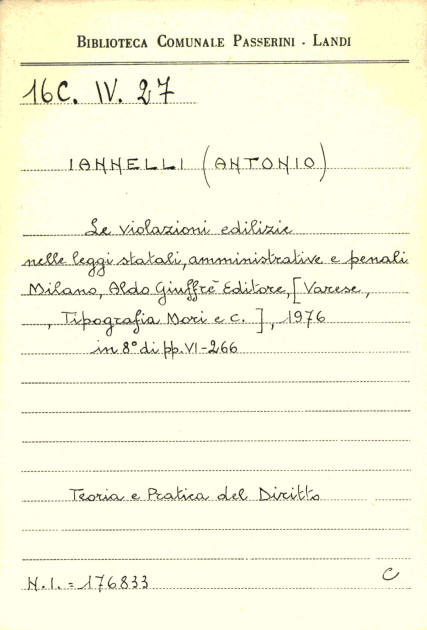 BIBLIOTECA COMUNALE PASSERINI - LANDI
16C. IV. 27
IANNELLI (ANTONIO)
Le violazioni edilizie
nelle leggi statali, amministrative e penali
Milano, Aldo Giuffrè Editore, [Varese,
, Tipografia Mori e C. ], 1976
in 8° di pp. VI-266
Teoria e Pratica del Diritto
N.I. = 176833
C